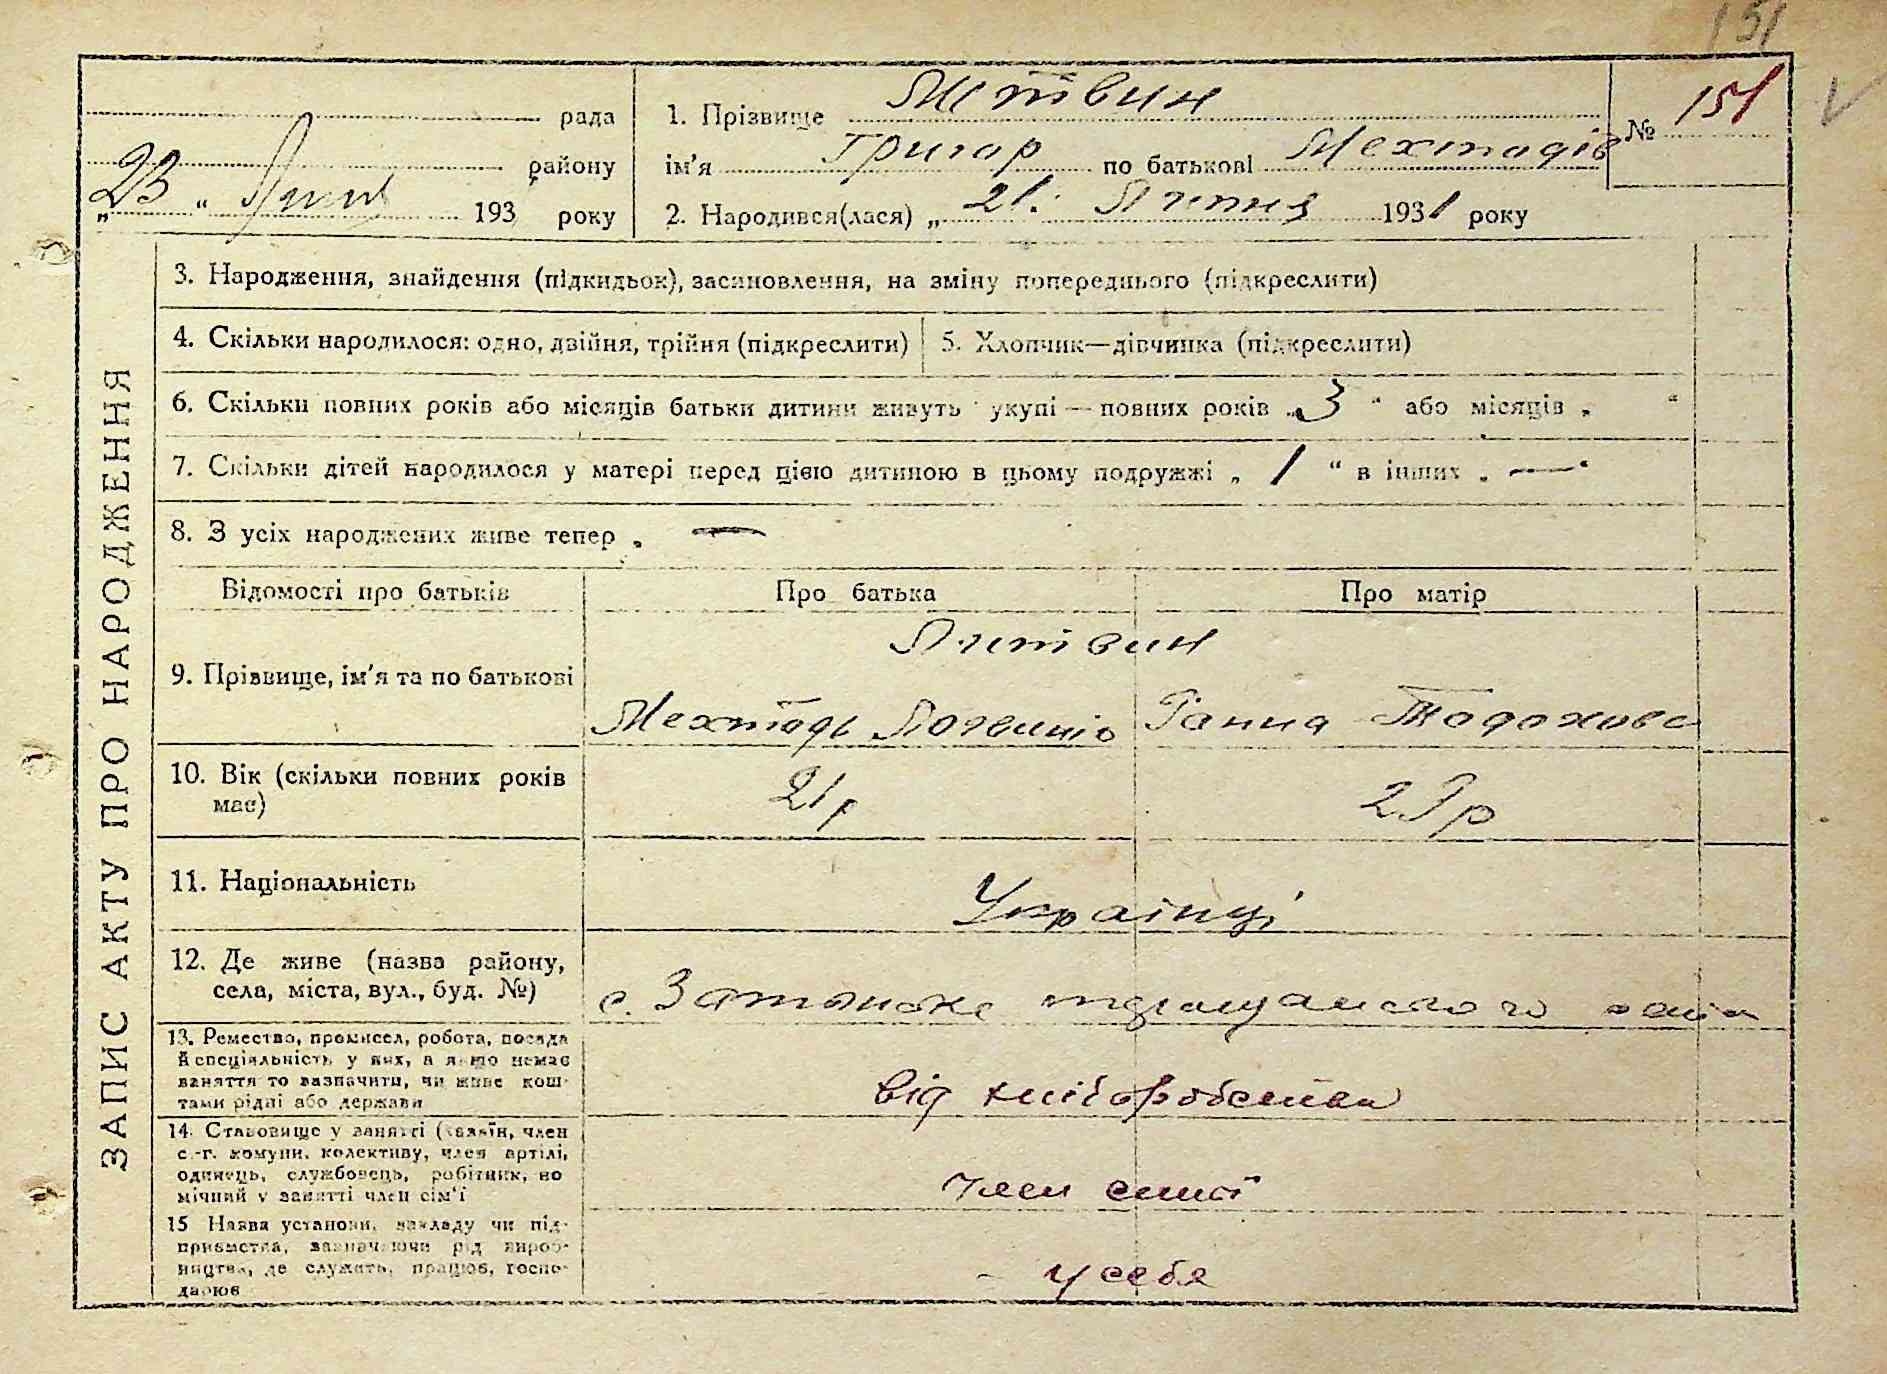 151
рада
1. Прізвище Литвин
№ 151
району
ім'я Григор по батькові Мехтодів
„23“ 193 року
2. Народився(лася) „21. Лютня 1931 року
ЗАПИС АКТУ ПРО НАРОДЖЕННЯ
3. Народження, знайдення (підкидьок), засиновлення, на зміну попереднього (підкреслити)
4. Скільки народилося: одно, двійня, трійня (підкреслити)
5. Хлопчик—дівчинка (підкреслити)
6. Скільки повних років або місяців батьки дитини живуть укупі — повних років „3“ або місяців „ “
7. Скільки дітей народилося у матері перед цією дитиною в цьому подружжі „1“ в інших „—“
8. З усіх народжених живе тепер „ —
Відомості про батьків
Про батька
Про матір
9. Прізвище, ім'я та по батькові
Литвин
Мехтодь
Ганна
10. Вік (скільки повних років
має)
21р
21р
11. Національність
Українці
12. Де живе (назва району,
села, міста, вул., буд. №)
с.
13. Ремество, промисел, робота, посада
й спеціяльність у них, а якщо немає
заняття то зазначити, чи живе кош-
тами рідні або держави
від хліборобства
14. Становище у занятті (хазяїн, член
с.-г. комуни, колективу, член артілі,
одинець, службовець, робітник, по
мічний у занятті член сім'ї
член симї
15 Назва установи, закладу чи під-
приємства, зазначаючи рід вироб-
ництва, де служить, працює, госпо-
дарює
- у себя